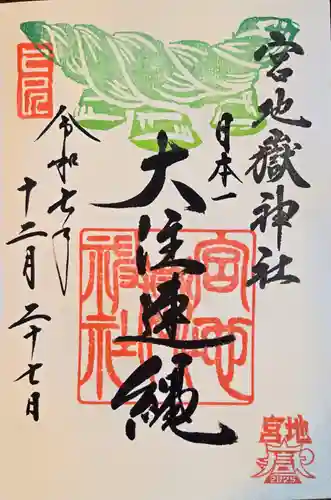 宮地嶽神社
日本一
大注連縄
令和七年
十二月二十七日
宮地嶽神社
宮地
2025